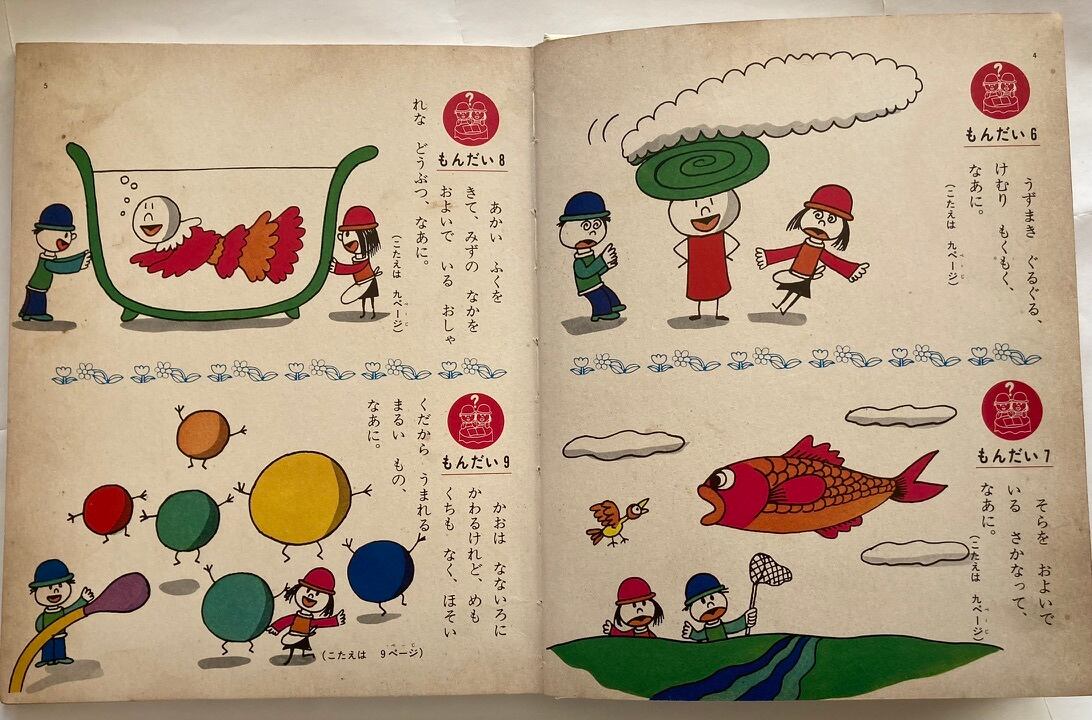 4
もんだい6
うずまき ぐるぐる、
けむり もくもく、
なあに。
(こたえは 九ページ)
もんだい7
そらを およいで
いる さかなって、
なあに。
(こたえは 九ページ)
5
もんだい8
あかい ふくを
きて、みずの なかを
およいで いる おしゃ
れな どうぶつ、なあに。
(こたえは 九ページ)
もんだい9
かおは なないろに
かわるけれど、めも
くちも なく、ほそい
くだから うまれる
まるい もの、
なあに。
(こたえは 9ページ)